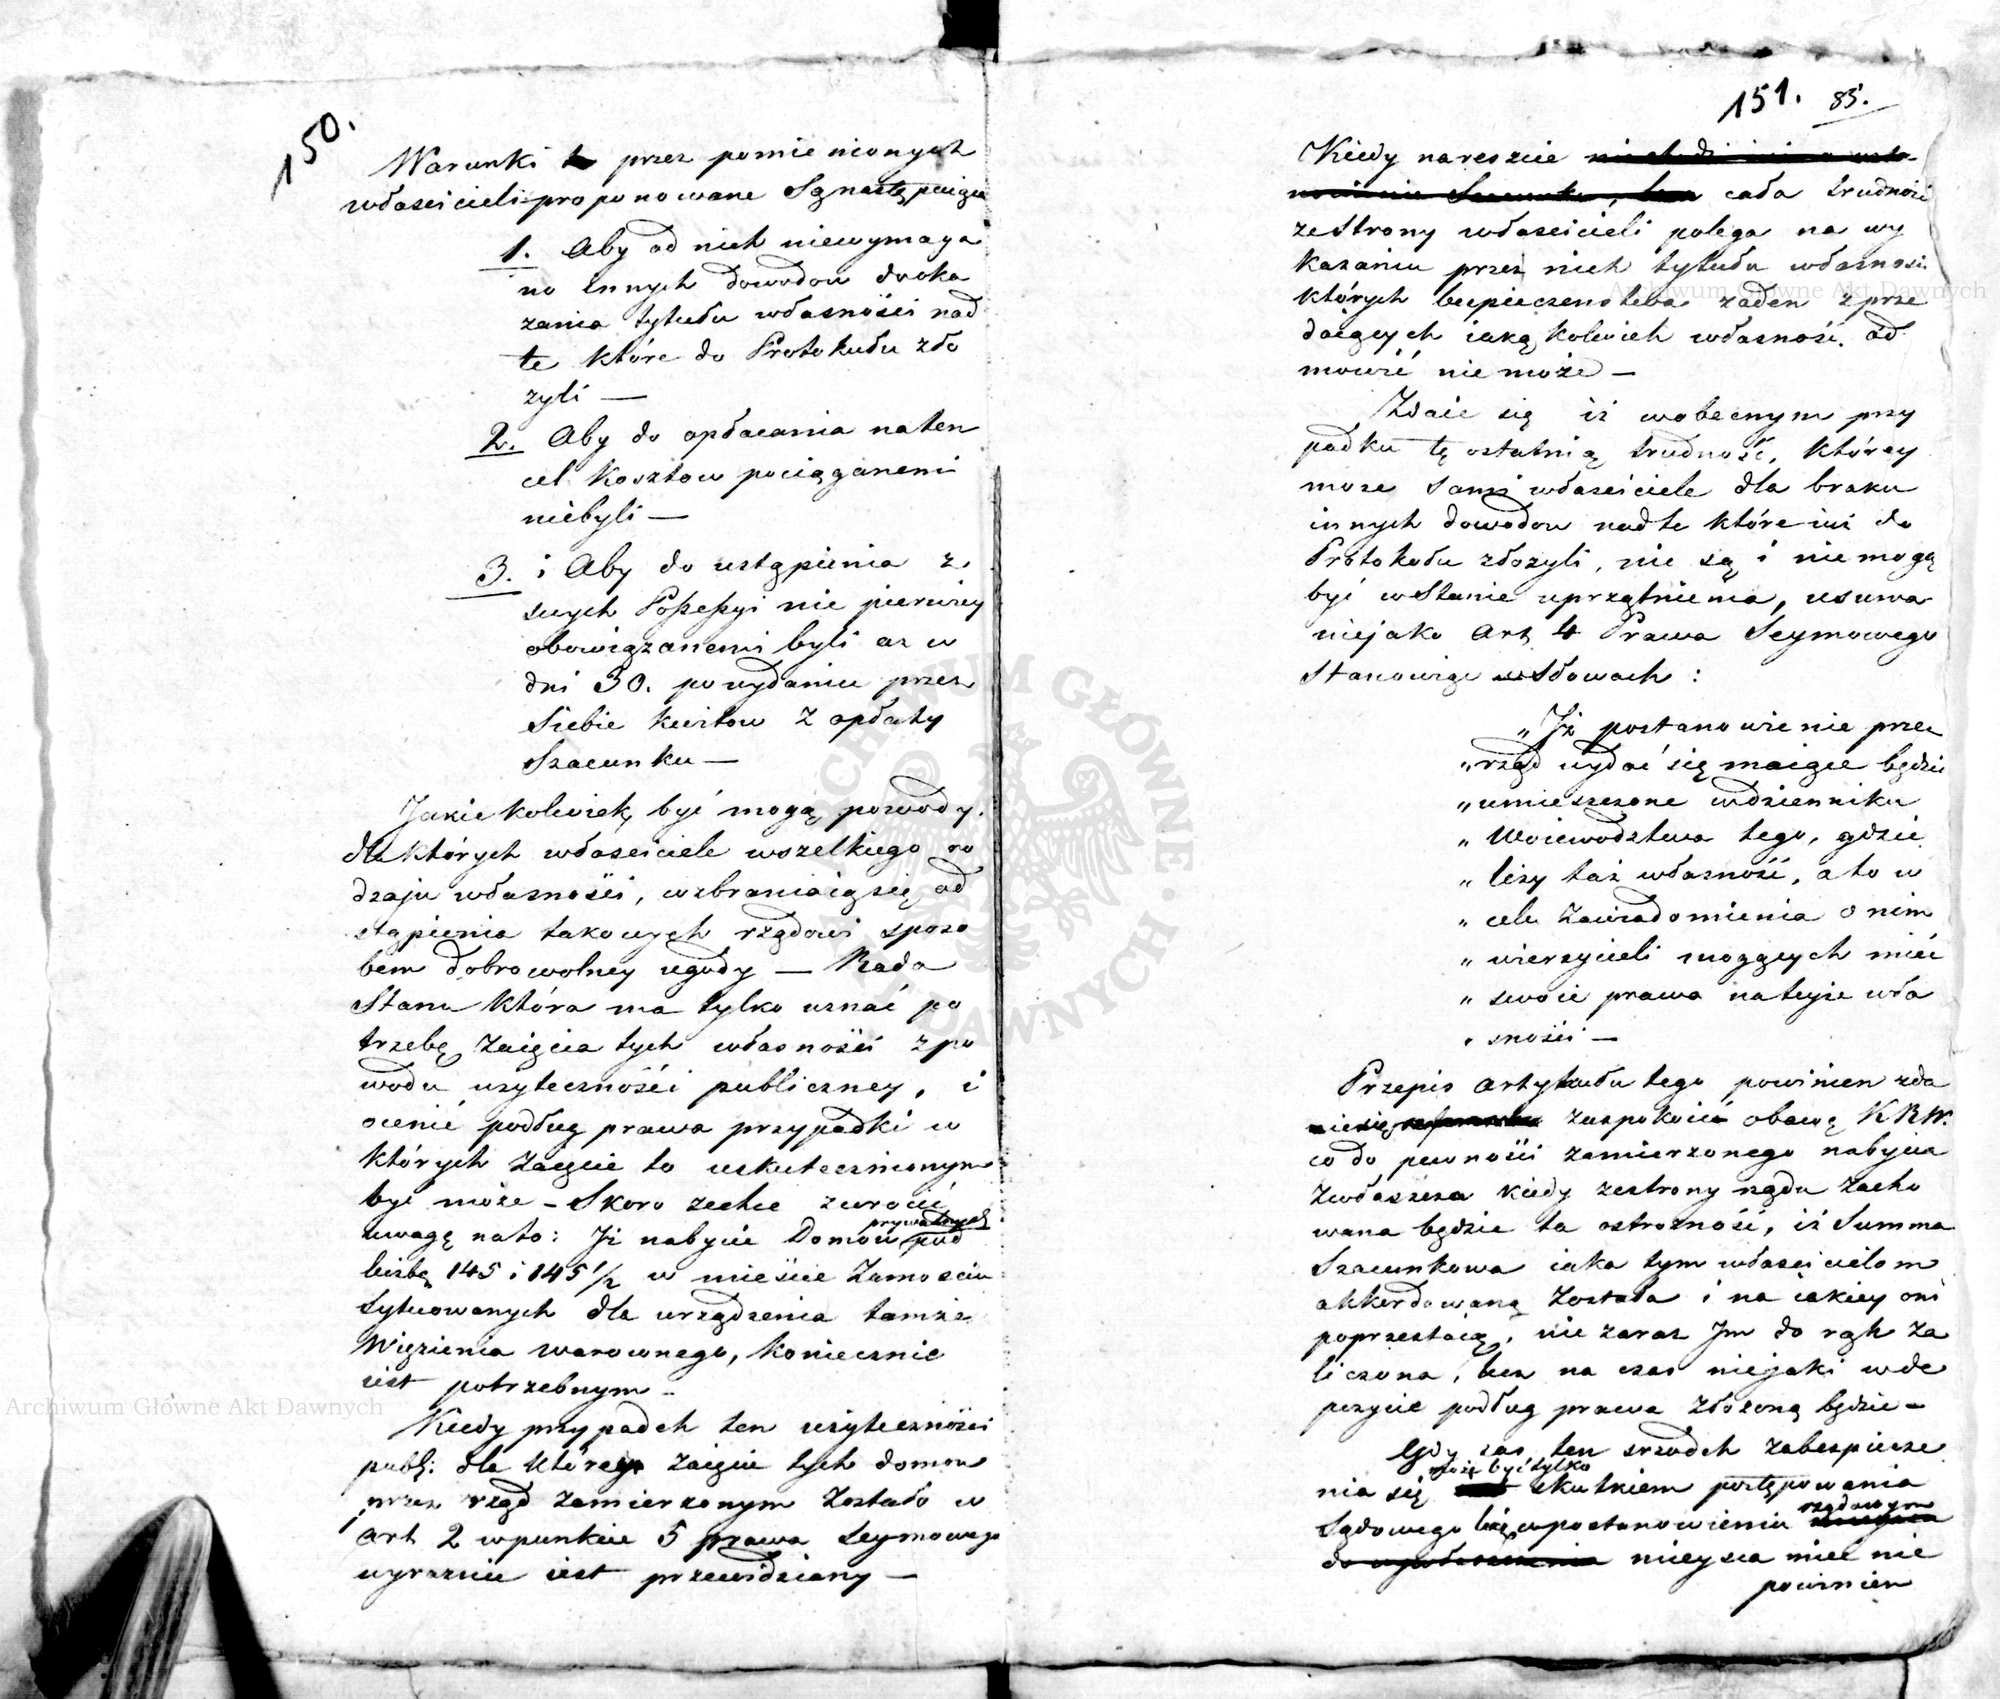 150.
Warunki przez pomienionych
właścicieli proponowane Są następuiące
1. Aby od nich niewymaga
no innych dowodow do oka
zania tytułu własności nad
te które do Protokułu zło
żyli —
2. Aby do opłacania na ten
cel Kosztow pociąganemi
niebyli —
3. i Aby do ustąpienia z
swych Possessyi nie pierwiey
obowiązanemi byli aż w
dni 30. po wydaniu przez
Siebie kwitow z opłaty
Szacunku —
Jakiekolwiek być mogą powody,
dla których właściciele wszelkiego ro
dzaju własności, wzbraniaią się od
stąpienia takowych rządowi sposo
bem dobrowolney ugody — Rada
Stanu która ma tylko uznać po
trzebę zaięcia tych własności z po
wodu użyteczności publiczney, i
ocenić podług prawa przypadki w
których zaięcie to uskutecznionym
być może — Skoro zechce zwrocić
uwagę na to: Iż nabycie Domow prywatnych pod
liczbą 145 i 145 1/2 w mieście Zamościu
Sytuowanych dla urządzenia tamże
Więzienia warownego, koniecznie
iest potrzebnym —
Kiedy przypadek ten użyteczności
publ: dla którey zaięcie tych domow
przez rząd zamierzonym zostało w
art 2 w punkcie 5 prawa Seymowego
wyraznie iest przewidziany —
151. 85.
Kiedy nareszcie
cała trudność
ze Strony właścicieli polega na wy
kazaniu przez nich tytułu własności
których bezpieczenstwa żaden z prze
daiących iaką kolwiek własność od
mowić nie może —
Zdaie się iż w obecnym przy
padku tę ostatnią trudność, którey
może sami właściciele dla braku
innych dowodow nad te które iuż do
Protokułu złożyli, nie są i nie mogą
być w Stanie uprzątnienia, usuwa
niejako art 4 Prawa Seymowego
Stanowiąc w Słowach:
„Iż postanowienie przez
„rząd wydać się maiące będzie
„umieszczone w dzienniku
„Woiewodztwa tego, gdzie
„leży taż własność, a to w
„celu zawiadomienia o nim
„wierzycieli mogących mieć
„swoie prawa na teyże wła
„sności —
Przepis artykułu tego powinien zda
niesię zaspokoić obawę K R W.
co do pewności zamierzonego nabycia
Zwłaszcza kiedy ze strony rządu zacho
wana będzie ta ostrożność, iż Summa
Szacunkowa iaka tym właścicielom
akkordowaną została i na iakiey oni
poprzestaią, nie zaraz Im do rąk za
liczona, lecz na czas niejaki w de
pozycie podług prawa złożoną będzie —
Gdy zas ten srzodek zabespiecze
nia się może być tylko skutkiem postępowania
Sądowego i w postanowieniu rządowym
mieysca mieć nie
powinien
Archiwum Główne Akt Dawnych
Archiwum Główne Akt Dawnych
ARCHIWUM GŁÓWNE AKT DAWNYCH